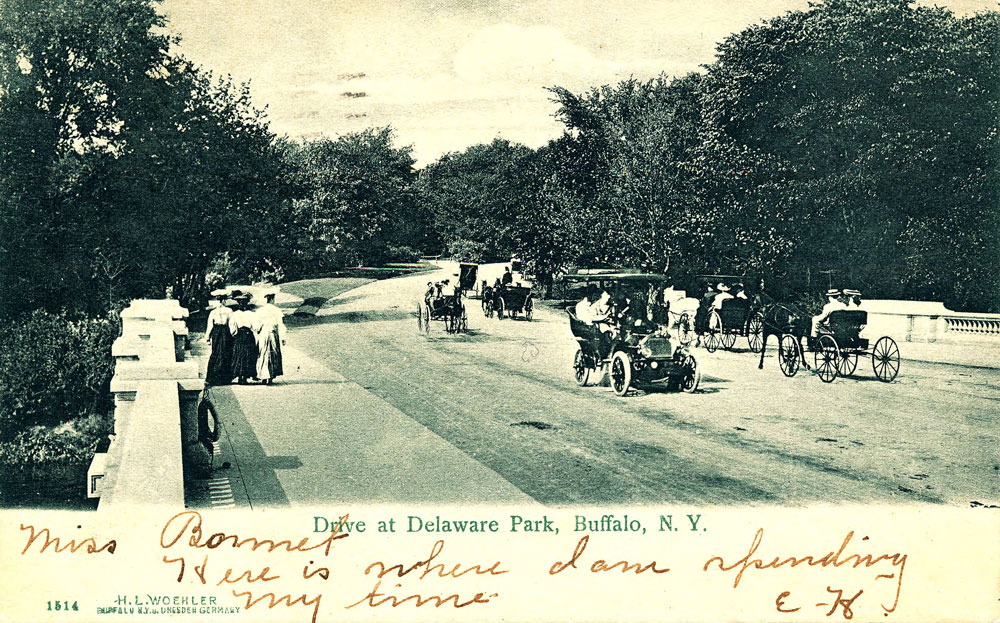 Drive at Delaware Park, Buffalo, N. Y.
Miss Bonnet
Here is where I am spending
my time
E-H-
1514
H.L. WOEHLER
BUFFALO N.Y. & DRESDEN GERMANY